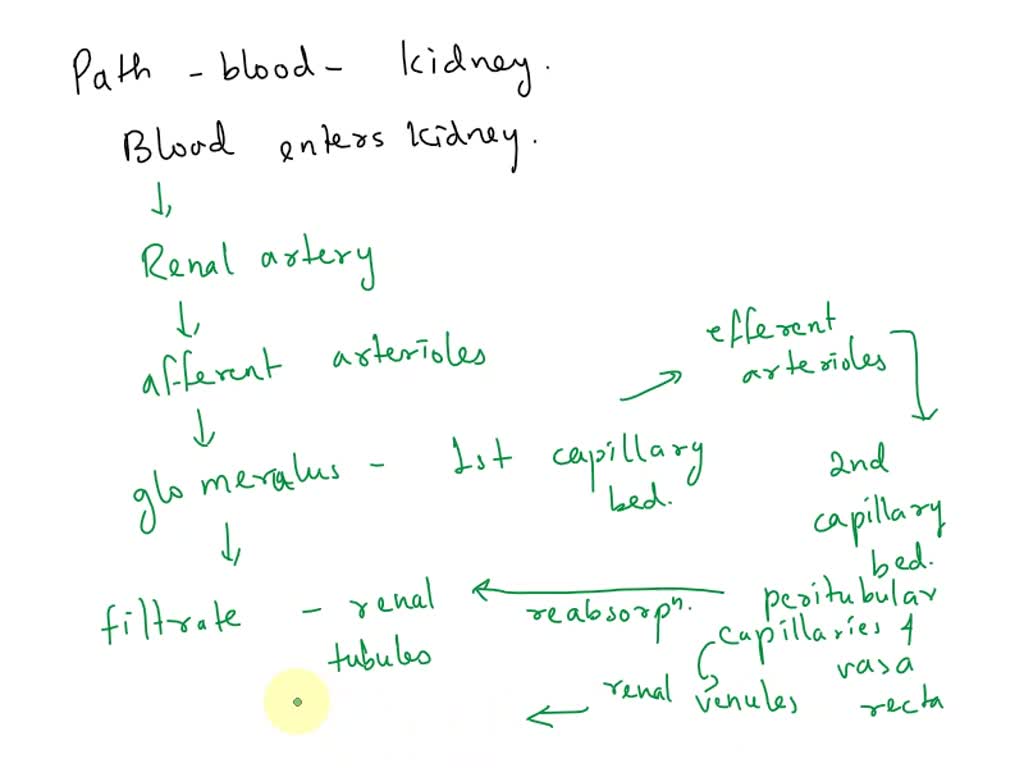 Path - blood - kidney.
Blood enters kidney.
↓
Renal artery
↓
afferent arterioles
↓
glomerulus - 1st capillary
bed.
↓
filtrate - renal
tubules
→ efferent
arterioles
2nd
capillary
bed.
peritubular
capillaries &
vasa
recta
← reabsorpⁿ.
renal venules
←